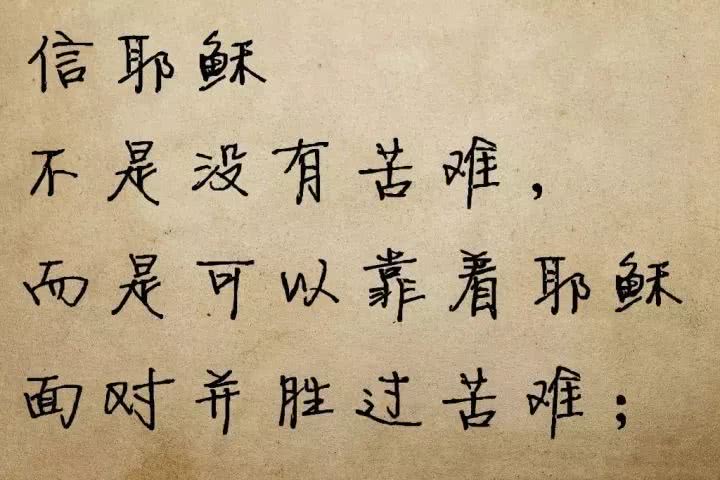 信耶稣
不是没有苦难，
而是可以靠着耶稣
面对并胜过苦难；